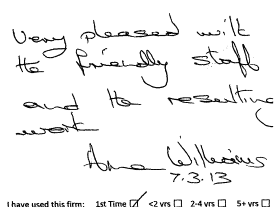 Very pleased with
the friendly staff
and the resulting
work
Anna Williams
7.3.13
I have used this firm: 1st Time ☑ <2 yrs ☐ 2-4 yrs ☐ 5+ yrs ☐